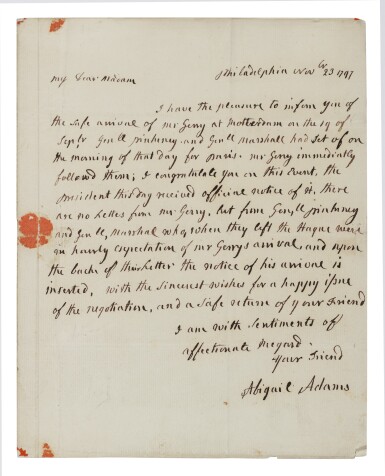 Philadelphia Novbr 23 1797
My Dear Madam
I have the pleasure to inform you of
the safe arrival of mr Gerry at Rotterdam on the 19 of
Sepbr Genll pinckney and Genll Marshall had set of on
the morning of that day for paris. mr Gerry immediatly
followed them; I congratulate you on this Event, the
president this day received official notice of it. there
are no Letters from mr Gerry, but from Genll pinckney
and Genll, Marshal who, when they left the Hague were
in hourly expectation of mr Gerrys arrival, and upon
the back of this Letter the notice of his arrival is
inserted, with the sincerest wishes for a happy issue
of the negotiation, and a safe return of your Friend
I am with sentiments of
affectionate regard.
Your Friend
Abigail Adams